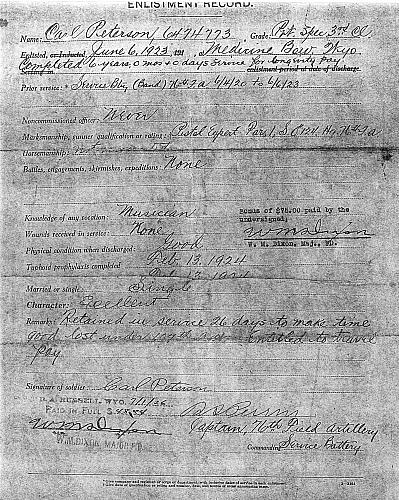 ENLISTMENT RECORD.
Name: Carl Peterson 6474773, Grade: Pvt. Spec 3rd Cl.
Enlisted, or Inducted, June 6, 1923, 191 , at Medicine Bow, Wyo.
Completed 6 years, 0 mos + 0 days service for longevity pay
Serving in enlistment period at date of discharge.
Prior service: * Service Btry (Band) 76th F.a. 6/4/20 to 6/6/23
Noncommissioned officer: Never
Marksmanship, gunner qualification or rating: Pistol Expert Par 1, S.O. 124 Hq 76th F.a
Horsemanship:
Battles, engagements, skirmishes, expeditions: None
Knowledge of any vocation: Musician
Bonus of $75.00 paid by the undersigned,
Wounds received in service: None
W M Dixon
W. M. Dixon, Maj., FD.
Physical condition when discharged: Good
Typhoid prophylaxis completed Feb 13, 1924
Married or single: Single
Character: Excellent
Remarks: Retained in service 26 days to make time
good lost under entitled to travel
pay
Signature of soldier: Carl Peterson
RUSSELL, WYO. 7/1/26
PAID IN FULL $
W M Dixon
W. M. DIXON, MAJOR F.D.
Captain, 76th Field Artillery
Commanding Service Battery